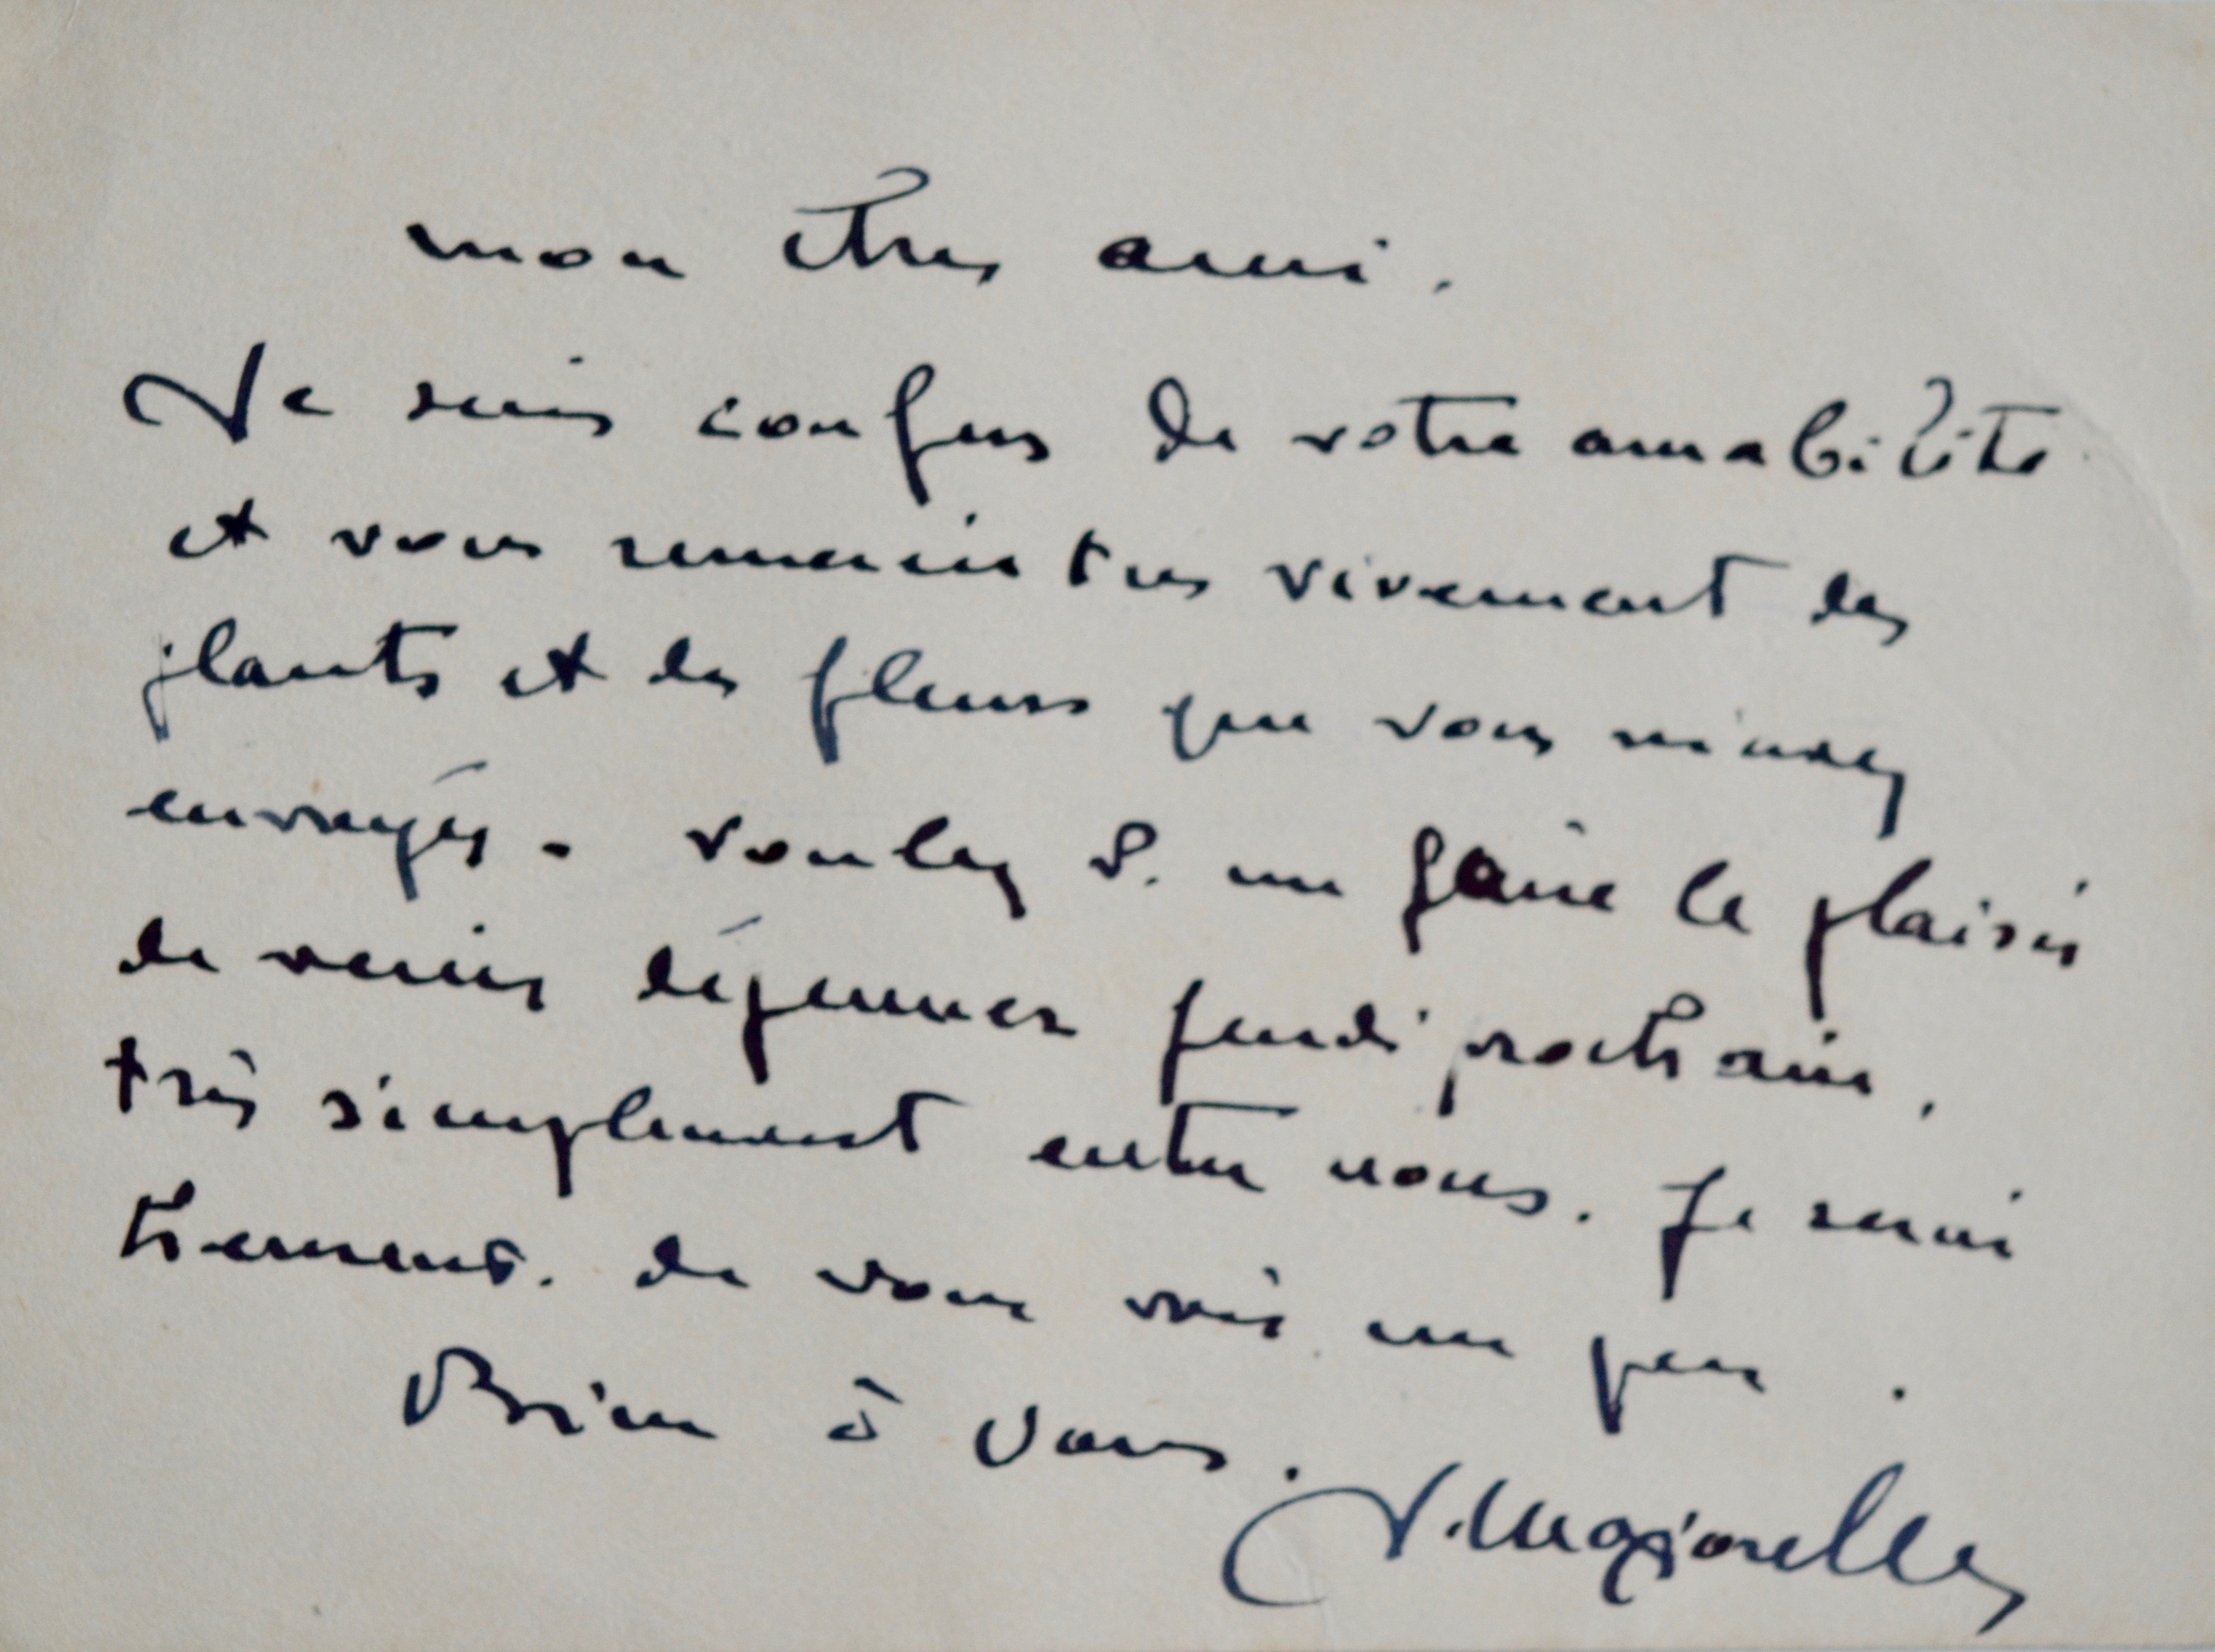 mon cher ami.
Je suis confus de votre amabilité
et vous remercie très vivement des
plants et des fleurs que vous m'avez
envoyés. Voulez v. me faire le plaisir
de venir déjeuner jeudi prochain,
très simplement entre nous. Je serai
heureux. de vous voir un peu.
Bien à vous.
J. Majorelle